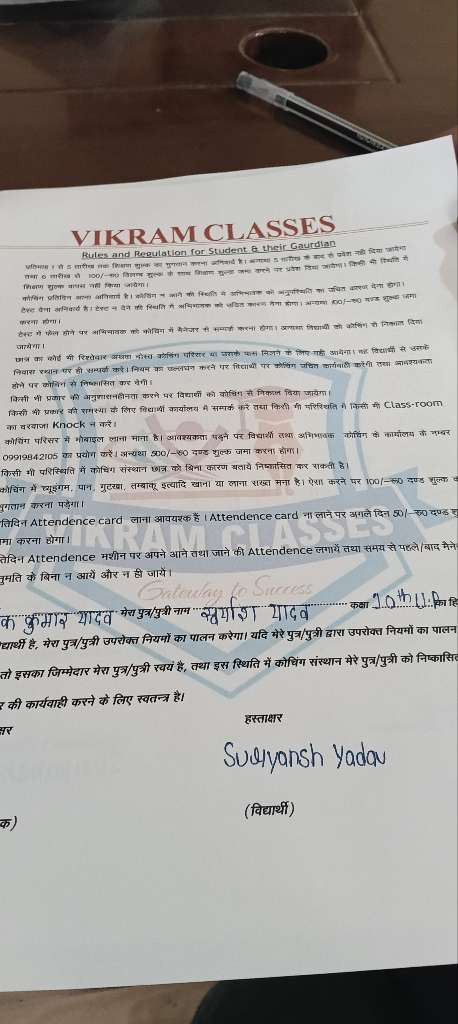 VIKRAM CLASSES
Rules and Regulation for Student & their Gaurdian
प्रतिमाह 1 से 5 तारीख तक शिक्षण शुल्क का भुगतान करना अनिवार्य है। अन्यथा 5 तारीख के बाद से प्रवेश नही दिया जायेगा
तथा 6 तारीख से 100/-रू0 विलम्ब शुल्क के साथ शिक्षण शुल्क जमा करने पर प्रवेश दिया जायेगा। किसी भी स्थिति में
शिक्षण शुल्क वापस नहीं किया जायेगा।
कोचिंग प्रतिदिन आना अनिवार्य है। कोचिंग न आने की स्थिति मे अभिभावक को अनुपस्थिति का उचित कारण देना होगा।
टेस्ट देना अनिवार्य है। टेस्ट न देने की स्थिति में अभिभावक को उचित कारण देना होगा। अन्यथा 100/-रू0 दण्ड शुल्क जमा
करना होगा।
टेस्ट मे फेल होने पर अभिभावक को कोचिंग में मैनेजर से सम्पर्क करना होगा। अन्यथा विद्यार्थी को कोचिंग से निकाल दिया
जायेगा।
छात्र का कोई भी रिश्तेदार अथवा दोस्त कोचिंग परिसर या उसके पास मिलने के लिए नही आयेगा। वह विद्यार्थी से उसके
निवास स्थान पर ही सम्पर्क करे। नियम का उल्लघन करने पर विद्यार्थी पर कोचिंग उचित कार्यवाही करेगी तथा आवश्यकता
होने पर कोचिंग से निष्कासित कर देगी।
किसी भी प्रकार की अनुशासनहीनता करने पर विद्यार्थी को कोचिंग से निकाल दिया जायेगा।
किसी भी प्रकार की समस्या के लिए विद्यार्थी कार्यालय में सम्पर्क करे तथा किसी भी परिस्थिति में किसी भी Class-room
का दरवाजा Knock न करें।
कोचिंग परिसर में मोबाइल लाना माना है। आवश्यकता पड़ने पर विद्यार्थी तथा अभिभावक कोचिंग के कार्यालय के नम्बर
09919842105 का प्रयोग करें। अन्यथा 500/-रू0 दण्ड शुल्क जमा करना होगा।
किसी भी परिस्थिति में कोचिंग संस्थान छात्र को बिना कारण बताये निष्कासित कर सकती है।
कोचिंग में च्यूइंगम, पान, गुटखा, तम्बाकू इत्यादि खाना या लाना सख्त मना है। ऐसा करने पर 100/-रू0 दण्ड शुल्क क
ुगतान करना पड़ेगा।
तिदिन Attendence card लाना आवयश्क है। Attendence card ना लाने पर अगले दिन 50/-रू0 दण्ड शु
मा करना होगा।
तिदिन Attendence मशीन पर अपने आने तथा जाने की Attendence लगायें तथा समय से पहले/बाद मैने
नुमति के बिना न आयें और न ही जायें।
VIKRAM CLASSES
Gateway to Success
क कुमार यादव मेरा पुत्र/पुत्री नाम सूर्यांश यादव कक्षा 10th U.P का हि
द्यार्थी है, मेरा पुत्र/पुत्री उपरोक्त नियमों का पालन करेगा। यदि मेरे पुत्र/पुत्री द्वारा उपरोक्त नियमों का पालन
तो इसका जिम्मेदार मेरा पुत्र/पुत्री स्वयं है, तथा इस स्थिति में कोचिंग संस्थान मेरे पुत्र/पुत्री को निष्कासित
र की कार्यवाही करने के लिए स्वतन्त्र है।
क्षर
हस्ताक्षर
Suryansh Yadav
क)
(विद्यार्थी)